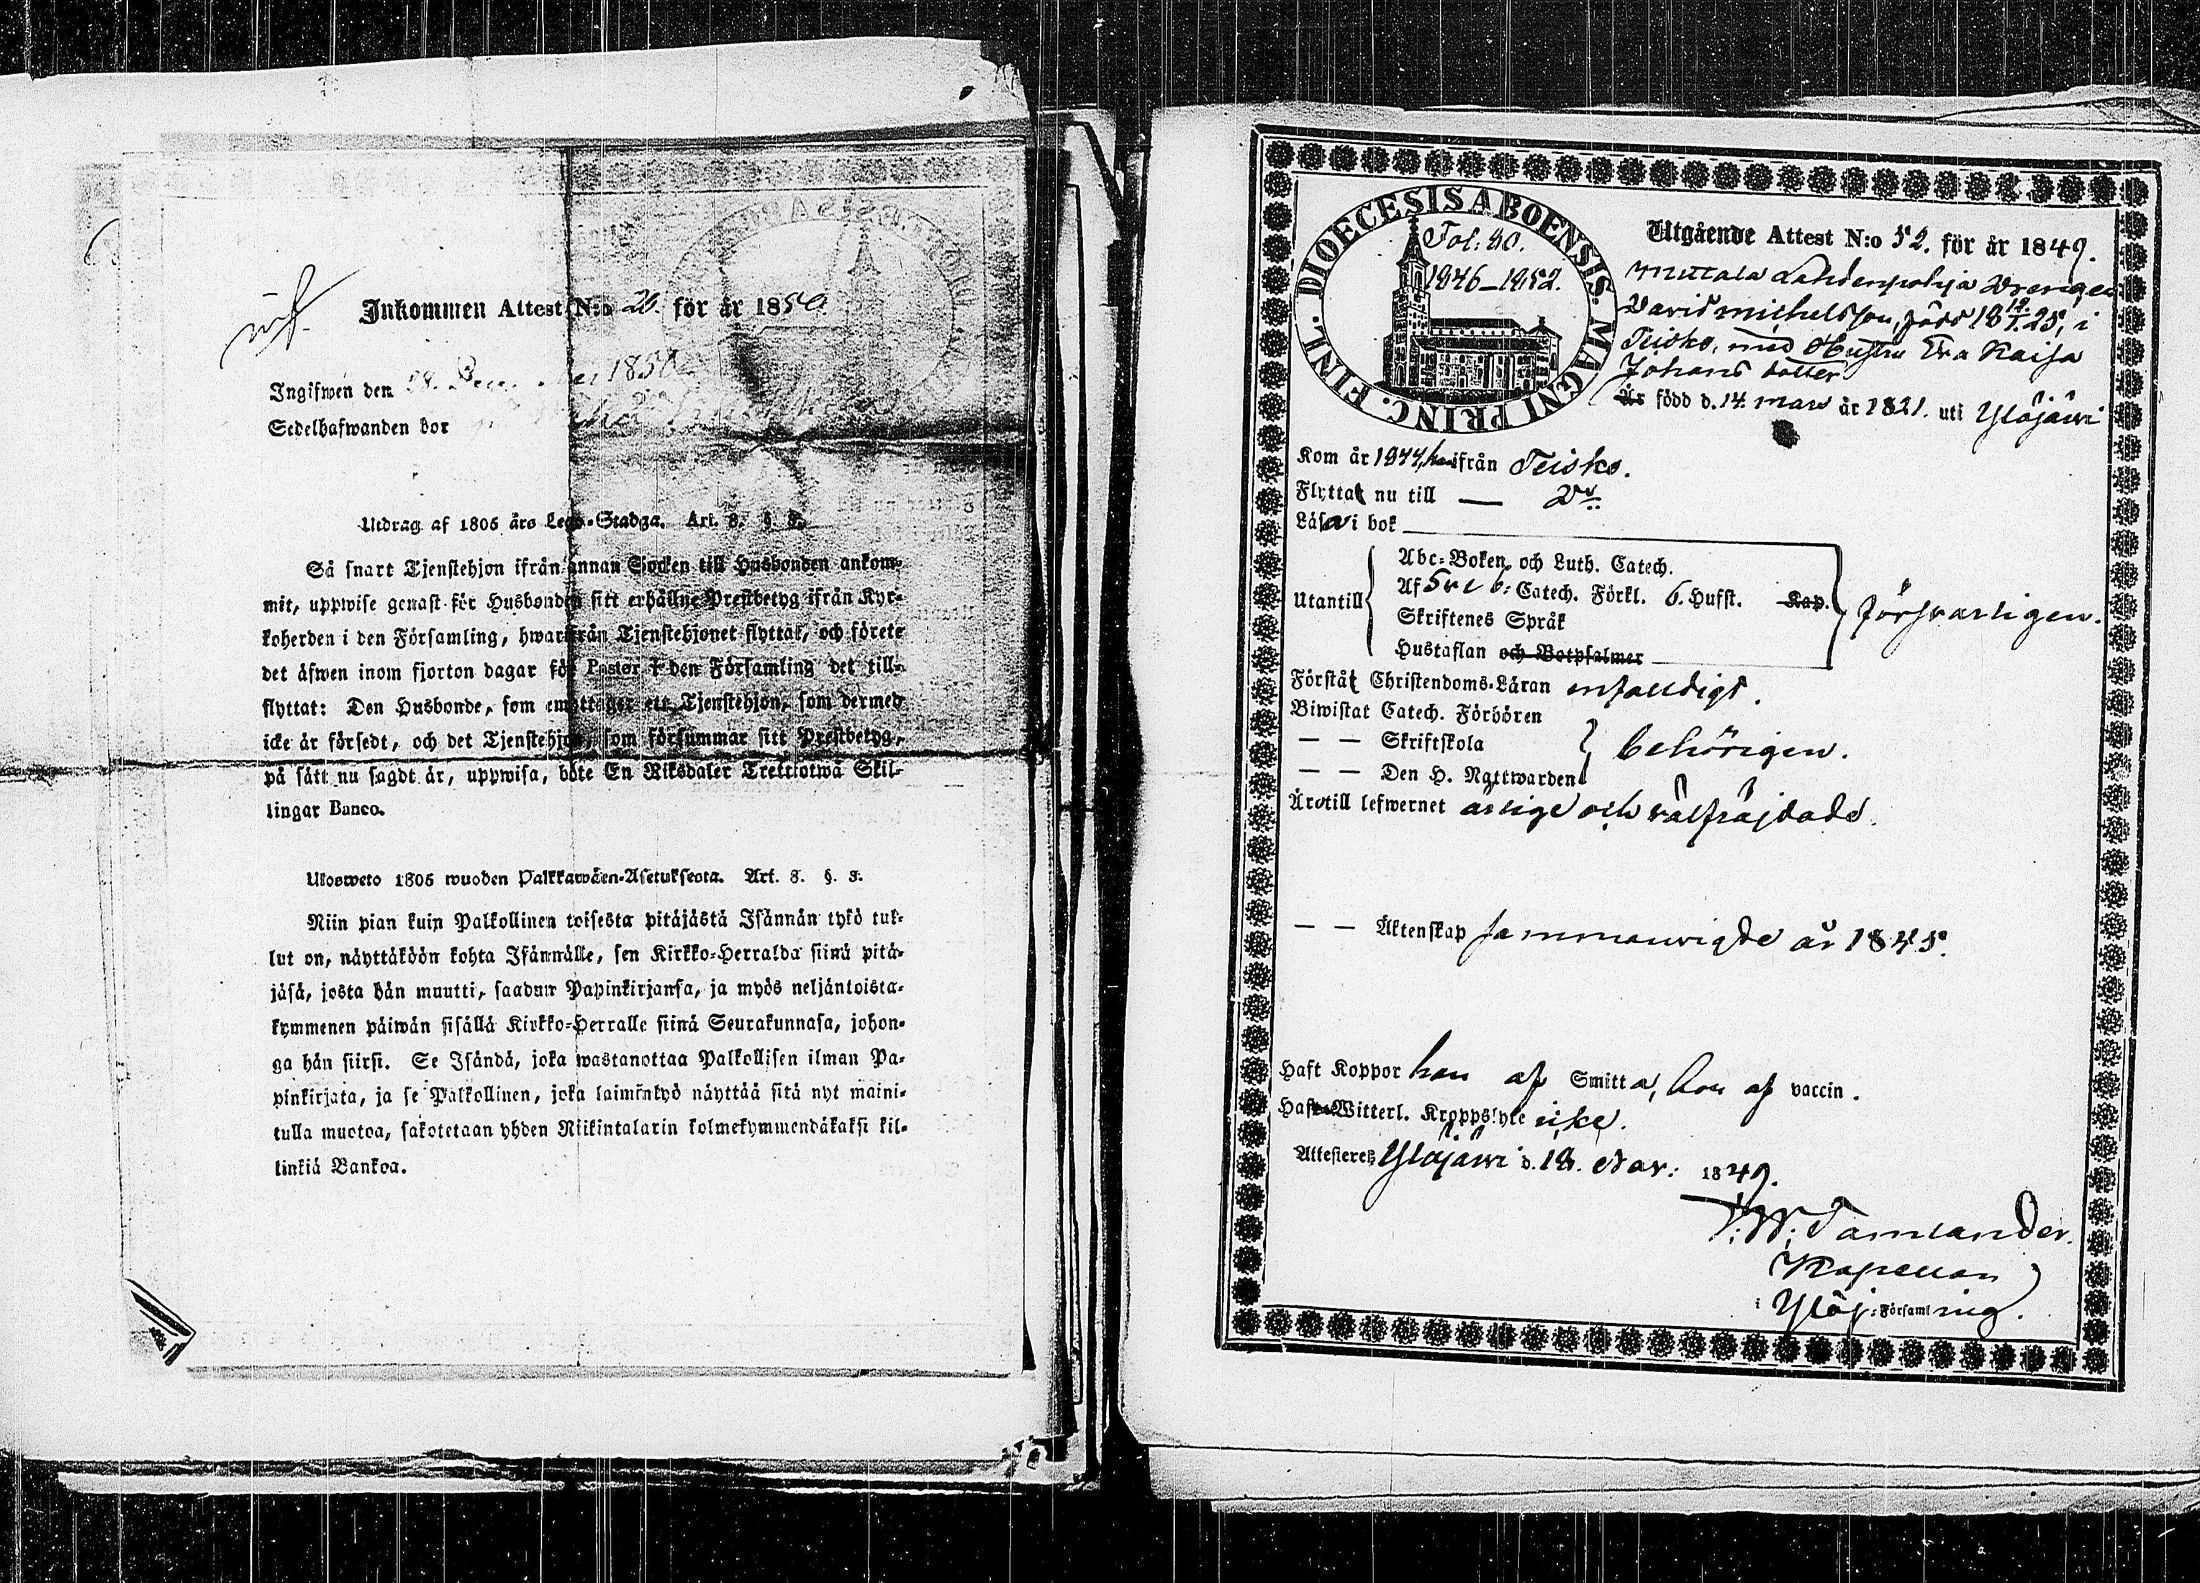 Inkommen Attest N:o 26. för år 1850
Ingifwen den 1850
Sedelhafwanden bor
Utdrag af 1805 års Lego-Stadga. Art. 8. §. 3.
Så snart Tjenstehjon ifrån annan Socken till Husbonden ankom-
mit, uppwise genast för Husbonden sitt erhållne Prestbetyg ifrån Kyr-
koherden i den Församling, hwarifrån Tjenstehjonet flyttat, och förete
det äfwen inom fjorton dagar för Pastor i den Församling det till-
flyttat: Den Husbonde, som emottager ett Tjenstehjon, som dermed
icke är försedt, och det Tjenstehjon, som försummar sitt Prestbetyg,
på sätt nu sagdt är, uppwisa, böte En Riksdaler Trettiotwå Skil-
lingar Banco.
Ulosweto 1805 wuoden Palkkawäen-Asetuksesta. Art. 8. §. 3.
Niin pian kuin Palkollinen toisesta pitäjästä Isännän tykö tul-
lut on, näyttäköön kohta Isännälle, sen Kirkko-Herralda siinä pitä-
jäsä, josta hän muutti, saadun Papinkirjansa, ja myös neljäntoista-
kymmenen päiwän sisällä Kirkko-Herralle siinä Seurakunnasa, johon-
ga hän siirsi. Se Isändä, joka wastanottaa Palkollisen ilman Pa-
pinkirjata, ja se Palkollinen, joka laiminlyö näyttää sitä nyt maini-
tulla muotoa, sakotetaan yhden Riikintalarin kolmekymmendäkaksi kil-
linkiä Bankoa.
DIOECESIS ABOENSIS. MAGNI PRINC. FINL.
Fol: 90.
1846-1852.
Utgående Attest N:o 52. för år 1849.
Mutala Lahdenpohja Drengen
David Michelsson, född 18 12/1 25, i
Teisko, med Hustru Eva Kaisa
Johansdotter
Är född d. 14 mars år 1821. uti Ylöjärvi
Kom år 1844, han ifrån Teisko.
Flyttat nu till — D:o
Läsa i bok
Abc-Boken och Luth. Catech.
Utantill Af Svebs: Catech. Förkl. 6. Hufst. Kap. försvarligen.
Skriftenes Språk
Hustaflan och Botpsalmer
Förstå Christendoms-Läran enfaldigt.
Biwistat Catech. Förhören
— — Skriftskola behörigen.
— — Den H. Nattwarden
Äro till lefwernet ärlige och välfräjdade.
— — Äktenskap sammanvigde år 1845.
Haft Koppor han af Smitta, hon af vaccin.
Haft Witterl. Kroppslyte icke.
Attesterer, Ylöjärvi d. 18. Nov: 1849.
Tamlander.
Kapellan
i Ylöj: Församling.